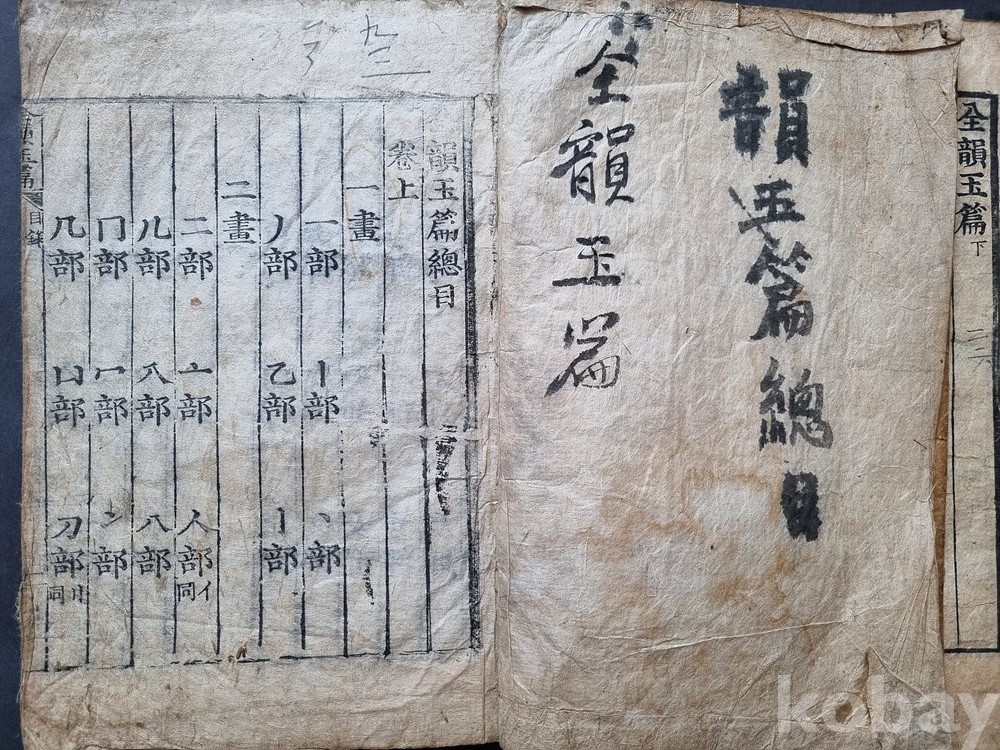 全韻玉篇 下
韻玉篇總目
全韻玉篇
韻玉篇總目
卷上
一畫
一部 丨部 丶部
丿部 乙部 亅部
二畫
二部 亠部 人部 亻同
儿部 入部 八部
冂部 冖部 冫部
几部 凵部 刀部 刂同
韻玉篇 目錄
kobay